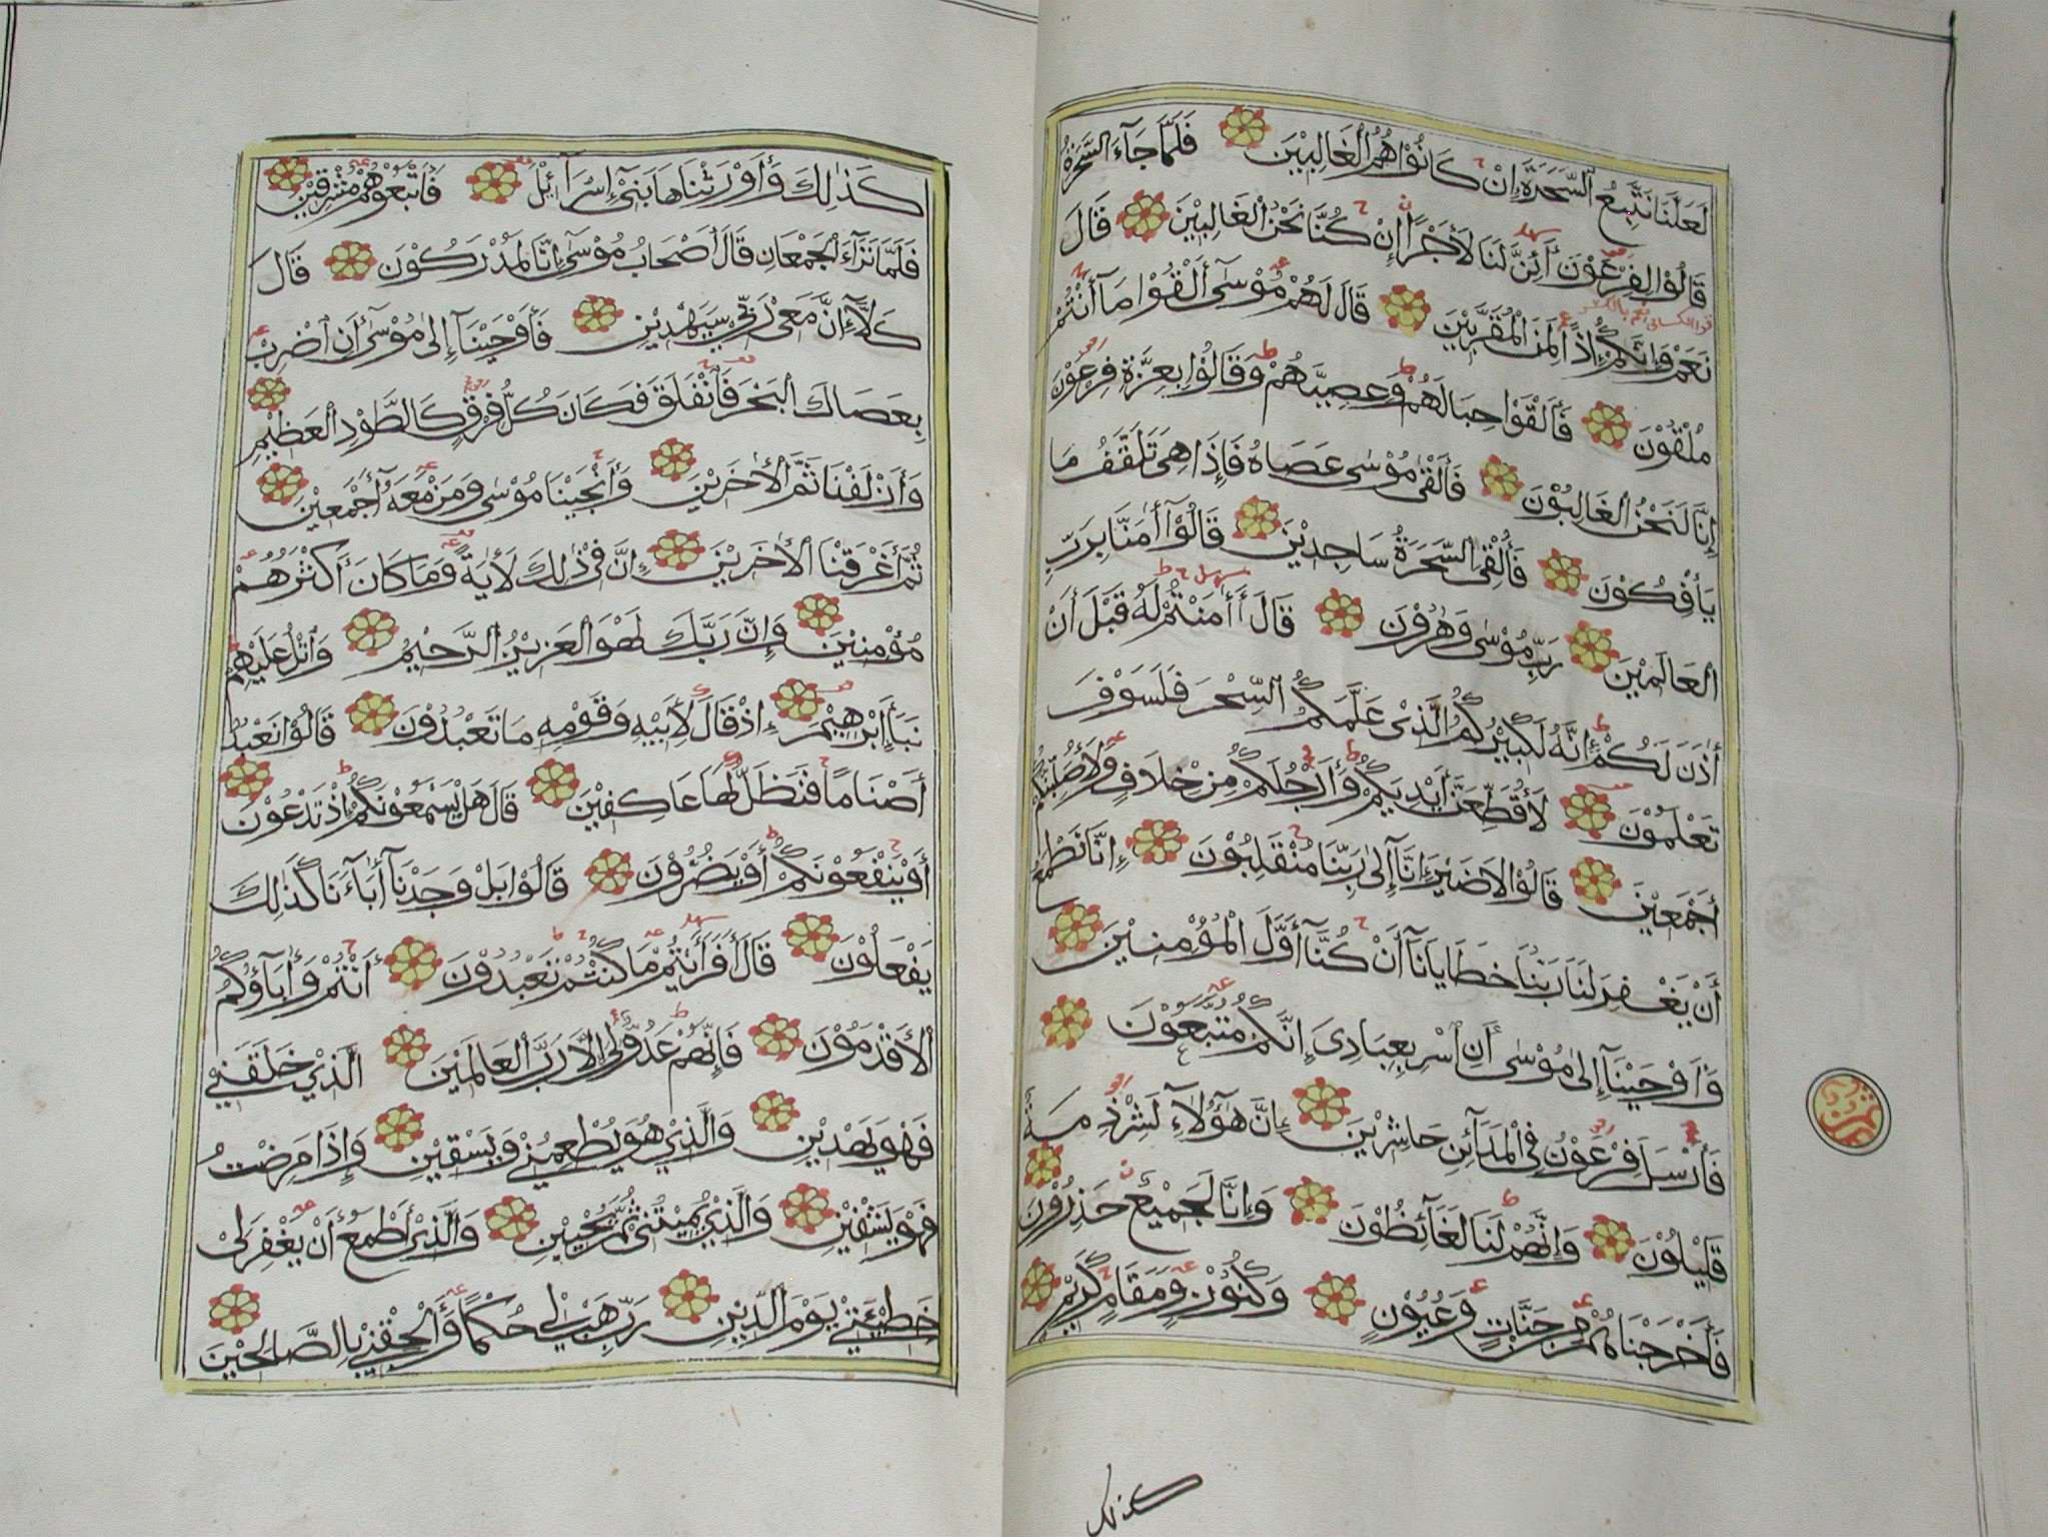 لَعَلَّنَا نَتَّبِعُ السَّحَرَةَ إِنْ كَانُوْا هُمُ الْغَالِبِيْنَ فَلَمَّا جَآءَ السَّحَرَةُ
قَالُوْا لِفِرْعَوْنَ أَئِنَّ لَنَا لَأَجْرًا إِنْ كُنَّا نَحْنُ الْغَالِبِيْنَ قَالَ
نَعَمْ وَإِنَّكُمْ إِذًا لَمِنَ الْمُقَرَّبِيْنَ قَالَ لَهُمْ مُوْسَى أَلْقُوْا مَآ أَنْتُمْ
مُلْقُوْنَ فَأَلْقَوْا حِبَالَهُمْ وَعِصِيَّهُمْ وَقَالُوْا بِعِزَّةِ فِرْعَوْنَ
إِنَّا لَنَحْنُ الْغَالِبُوْنَ فَأَلْقَى مُوْسَى عَصَاهُ فَإِذَا هِيَ تَلَقَّفُ مَا
يَأْفِكُوْنَ فَأُلْقِيَ السَّحَرَةُ سَاجِدِيْنَ قَالُوْآ أٰمَنَّا بِرَبِّ
الْعَالَمِيْنَ رَبِّ مُوْسَى وَهٰرُوْنَ قَالَ أَأٰمَنْتُمْ لَهُ قَبْلَ أَنْ
أٰذَنَ لَكُمْ إِنَّهُ لَكَبِيْرُكُمُ الَّذِيْ عَلَّمَكُمُ السِّحْرَ فَلَسَوْفَ
تَعْلَمُوْنَ لَأُقَطِّعَنَّ أَيْدِيَكُمْ وَأَرْجُلَكُمْ مِنْ خِلَافٍ وَلَأُصَلِّبَنَّكُمْ
أَجْمَعِيْنَ قَالُوْا لَا ضَيْرَ إِنَّآ إِلَى رَبِّنَا مُنْقَلِبُوْنَ إِنَّا نَطْمَعُ
أَنْ يَغْفِرَ لَنَا رَبُّنَا خَطَايَانَآ أَنْ كُنَّآ أَوَّلَ الْمُؤْمِنِيْنَ
وَأَوْحَيْنَآ إِلَى مُوْسَى أَنْ أَسْرِ بِعِبَادِيَ إِنَّكُمْ مُتَّبَعُوْنَ
فَأَرْسَلَ فِرْعَوْنُ فِي الْمَدَآئِنِ حَاشِرِيْنَ إِنَّ هٰٓؤُلَآءِ لَشِرْذِمَةٌ
قَلِيْلُوْنَ وَإِنَّهُمْ لَنَا لَغَآئِظُوْنَ وَإِنَّا لَجَمِيْعٌ حَذِرُوْنَ
فَأَخْرَجْنَاهُمْ مِنْ جَنَّاتٍ وَعُيُوْنٍ وَكُنُوْزٍ وَمَقَامٍ كَرِيْمٍ
كذلك
كَذٰلِكَ وَأَوْرَثْنَاهَا بَنِيْ إِسْرَآئِيْلَ فَأَتْبَعُوْهُمْ مُشْرِقِيْنَ
فَلَمَّا تَرَآءَ الْجَمْعَانِ قَالَ أَصْحَابُ مُوْسَى إِنَّا لَمُدْرَكُوْنَ قَالَ
كَلَّآ إِنَّ مَعِيَ رَبِّيْ سَيَهْدِيْنِ فَأَوْحَيْنَآ إِلَى مُوْسَى أَنِ اضْرِبْ
بِعَصَاكَ الْبَحْرَ فَانْفَلَقَ فَكَانَ كُلُّ فِرْقٍ كَالطَّوْدِ الْعَظِيْمِ
وَأَزْلَفْنَا ثَمَّ الْأٰخَرِيْنَ وَأَنْجَيْنَا مُوْسَى وَمَنْ مَعَهُ أَجْمَعِيْنَ
ثُمَّ أَغْرَقْنَا الْأٰخَرِيْنَ إِنَّ فِيْ ذٰلِكَ لَأٰيَةً وَمَا كَانَ أَكْثَرُهُمْ
مُؤْمِنِيْنَ وَإِنَّ رَبَّكَ لَهُوَ الْعَزِيْزُ الرَّحِيْمُ وَاتْلُ عَلَيْهِمْ
نَبَأَ إِبْرٰهِيْمَ إِذْ قَالَ لِأَبِيْهِ وَقَوْمِهِ مَا تَعْبُدُوْنَ قَالُوْا نَعْبُدُ
أَصْنَامًا فَنَظَلُّ لَهَا عَاكِفِيْنَ قَالَ هَلْ يَسْمَعُوْنَكُمْ إِذْ تَدْعُوْنَ
أَوْ يَنْفَعُوْنَكُمْ أَوْ يَضُرُّوْنَ قَالُوْا بَلْ وَجَدْنَآ أٰبَآءَنَا كَذٰلِكَ
يَفْعَلُوْنَ قَالَ أَفَرَأَيْتُمْ مَا كُنْتُمْ تَعْبُدُوْنَ أَنْتُمْ وَأٰبَآؤُكُمُ
الْأَقْدَمُوْنَ فَإِنَّهُمْ عَدُوٌّ لِيْ إِلَّا رَبَّ الْعَالَمِيْنَ الَّذِيْ خَلَقَنِيْ
فَهُوَ يَهْدِيْنِ وَالَّذِيْ هُوَ يُطْعِمُنِيْ وَيَسْقِيْنِ وَإِذَا مَرِضْتُ
فَهُوَ يَشْفِيْنِ وَالَّذِيْ يُمِيْتُنِيْ ثُمَّ يُحْيِيْنِ وَالَّذِيْ أَطْمَعُ أَنْ يَغْفِرَ لِيْ
خَطِيْئَتِيْ يَوْمَ الدِّيْنِ رَبِّ هَبْ لِيْ حُكْمًا وَأَلْحِقْنِيْ بِالصَّالِحِيْنَ